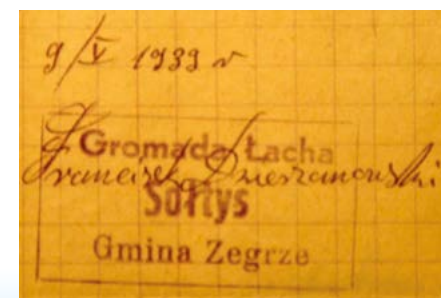 9/V 1939 r
Gromada Łacha
Franciszek Dzierżanowski
Sołtys
Gmina Zegrze